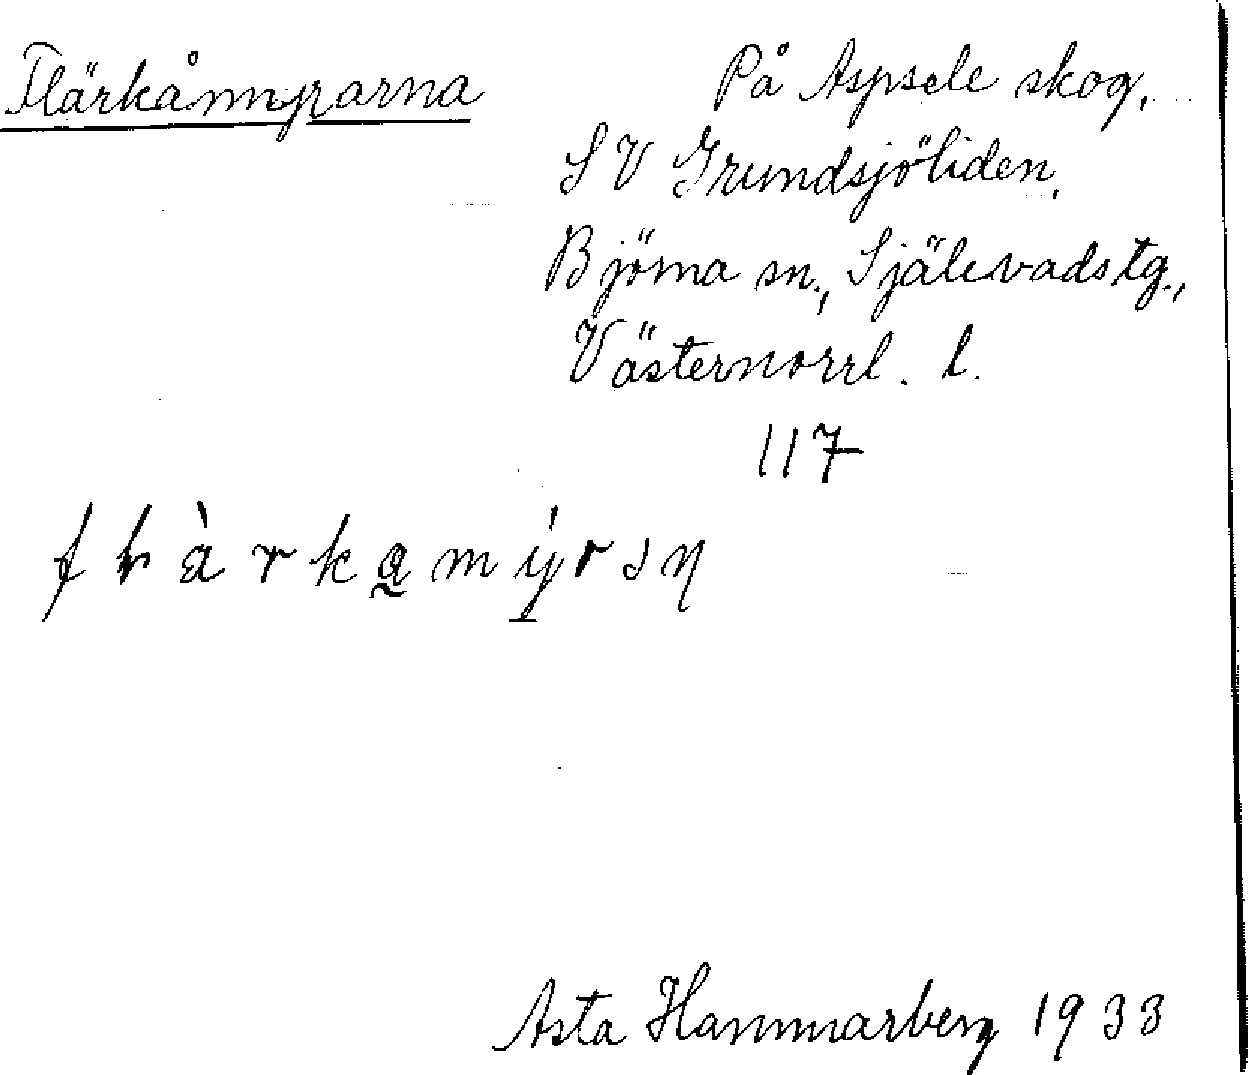 Flärkåmyrarna
På Aspsele skog,
SV Grundsjöliden,
Björna sn., Själevads tg.,
Västernorrl. l.
117
Asta Hammarberg 1933